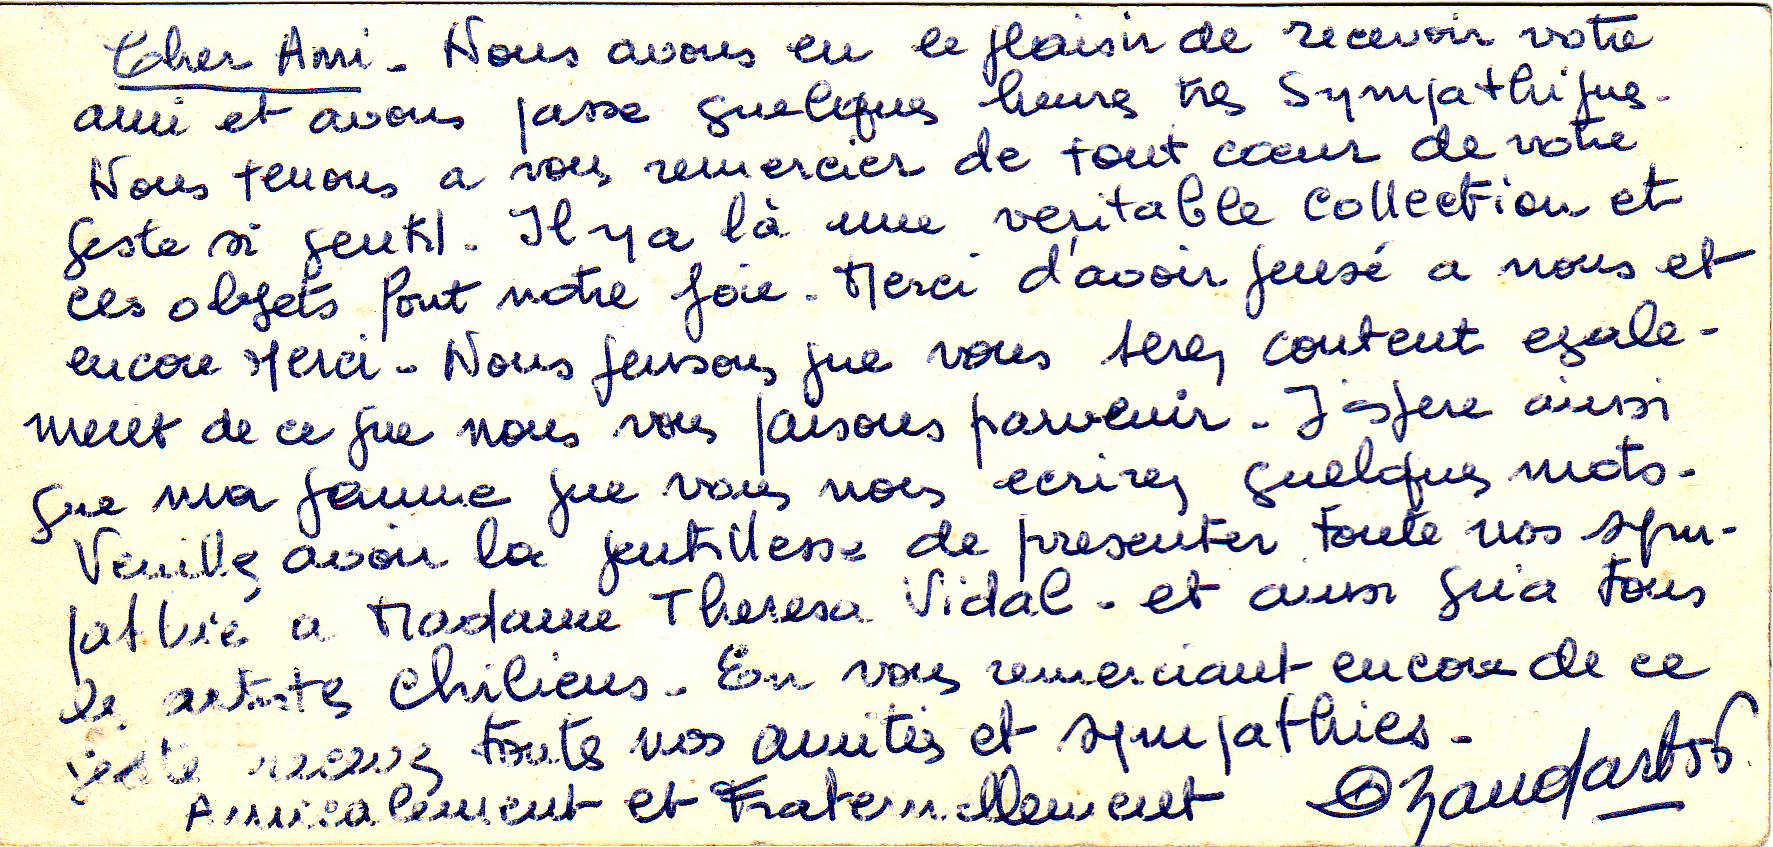 Cher Ami - Nous avons eu le plaisir de recevoir votre
ami et avons passe quelques heures tres Sympathique.
Nous tenons a vous remercier de tout coeur de votre
geste si gentil. Il y a là une veritable Collection et
ces objets font notre joie. Merci d'avoir pensé a nous et
encore Merci - Nous pensons que vous serez content egale-
ment de ce que nous vous faisons parvenir - J'espere aussi
que ma femme que vous nous ecrirez quelques mots.
Veuillez avoir la gentillesse de presenter toute nos sym-
pathie a Madame Theresa Vidal - et ainsi qu'a tous
les artistes Chiliens. En vous remerciant encore de ce
geste recevez toute nos amities et sympathies -
Amicalement et Fraternellement